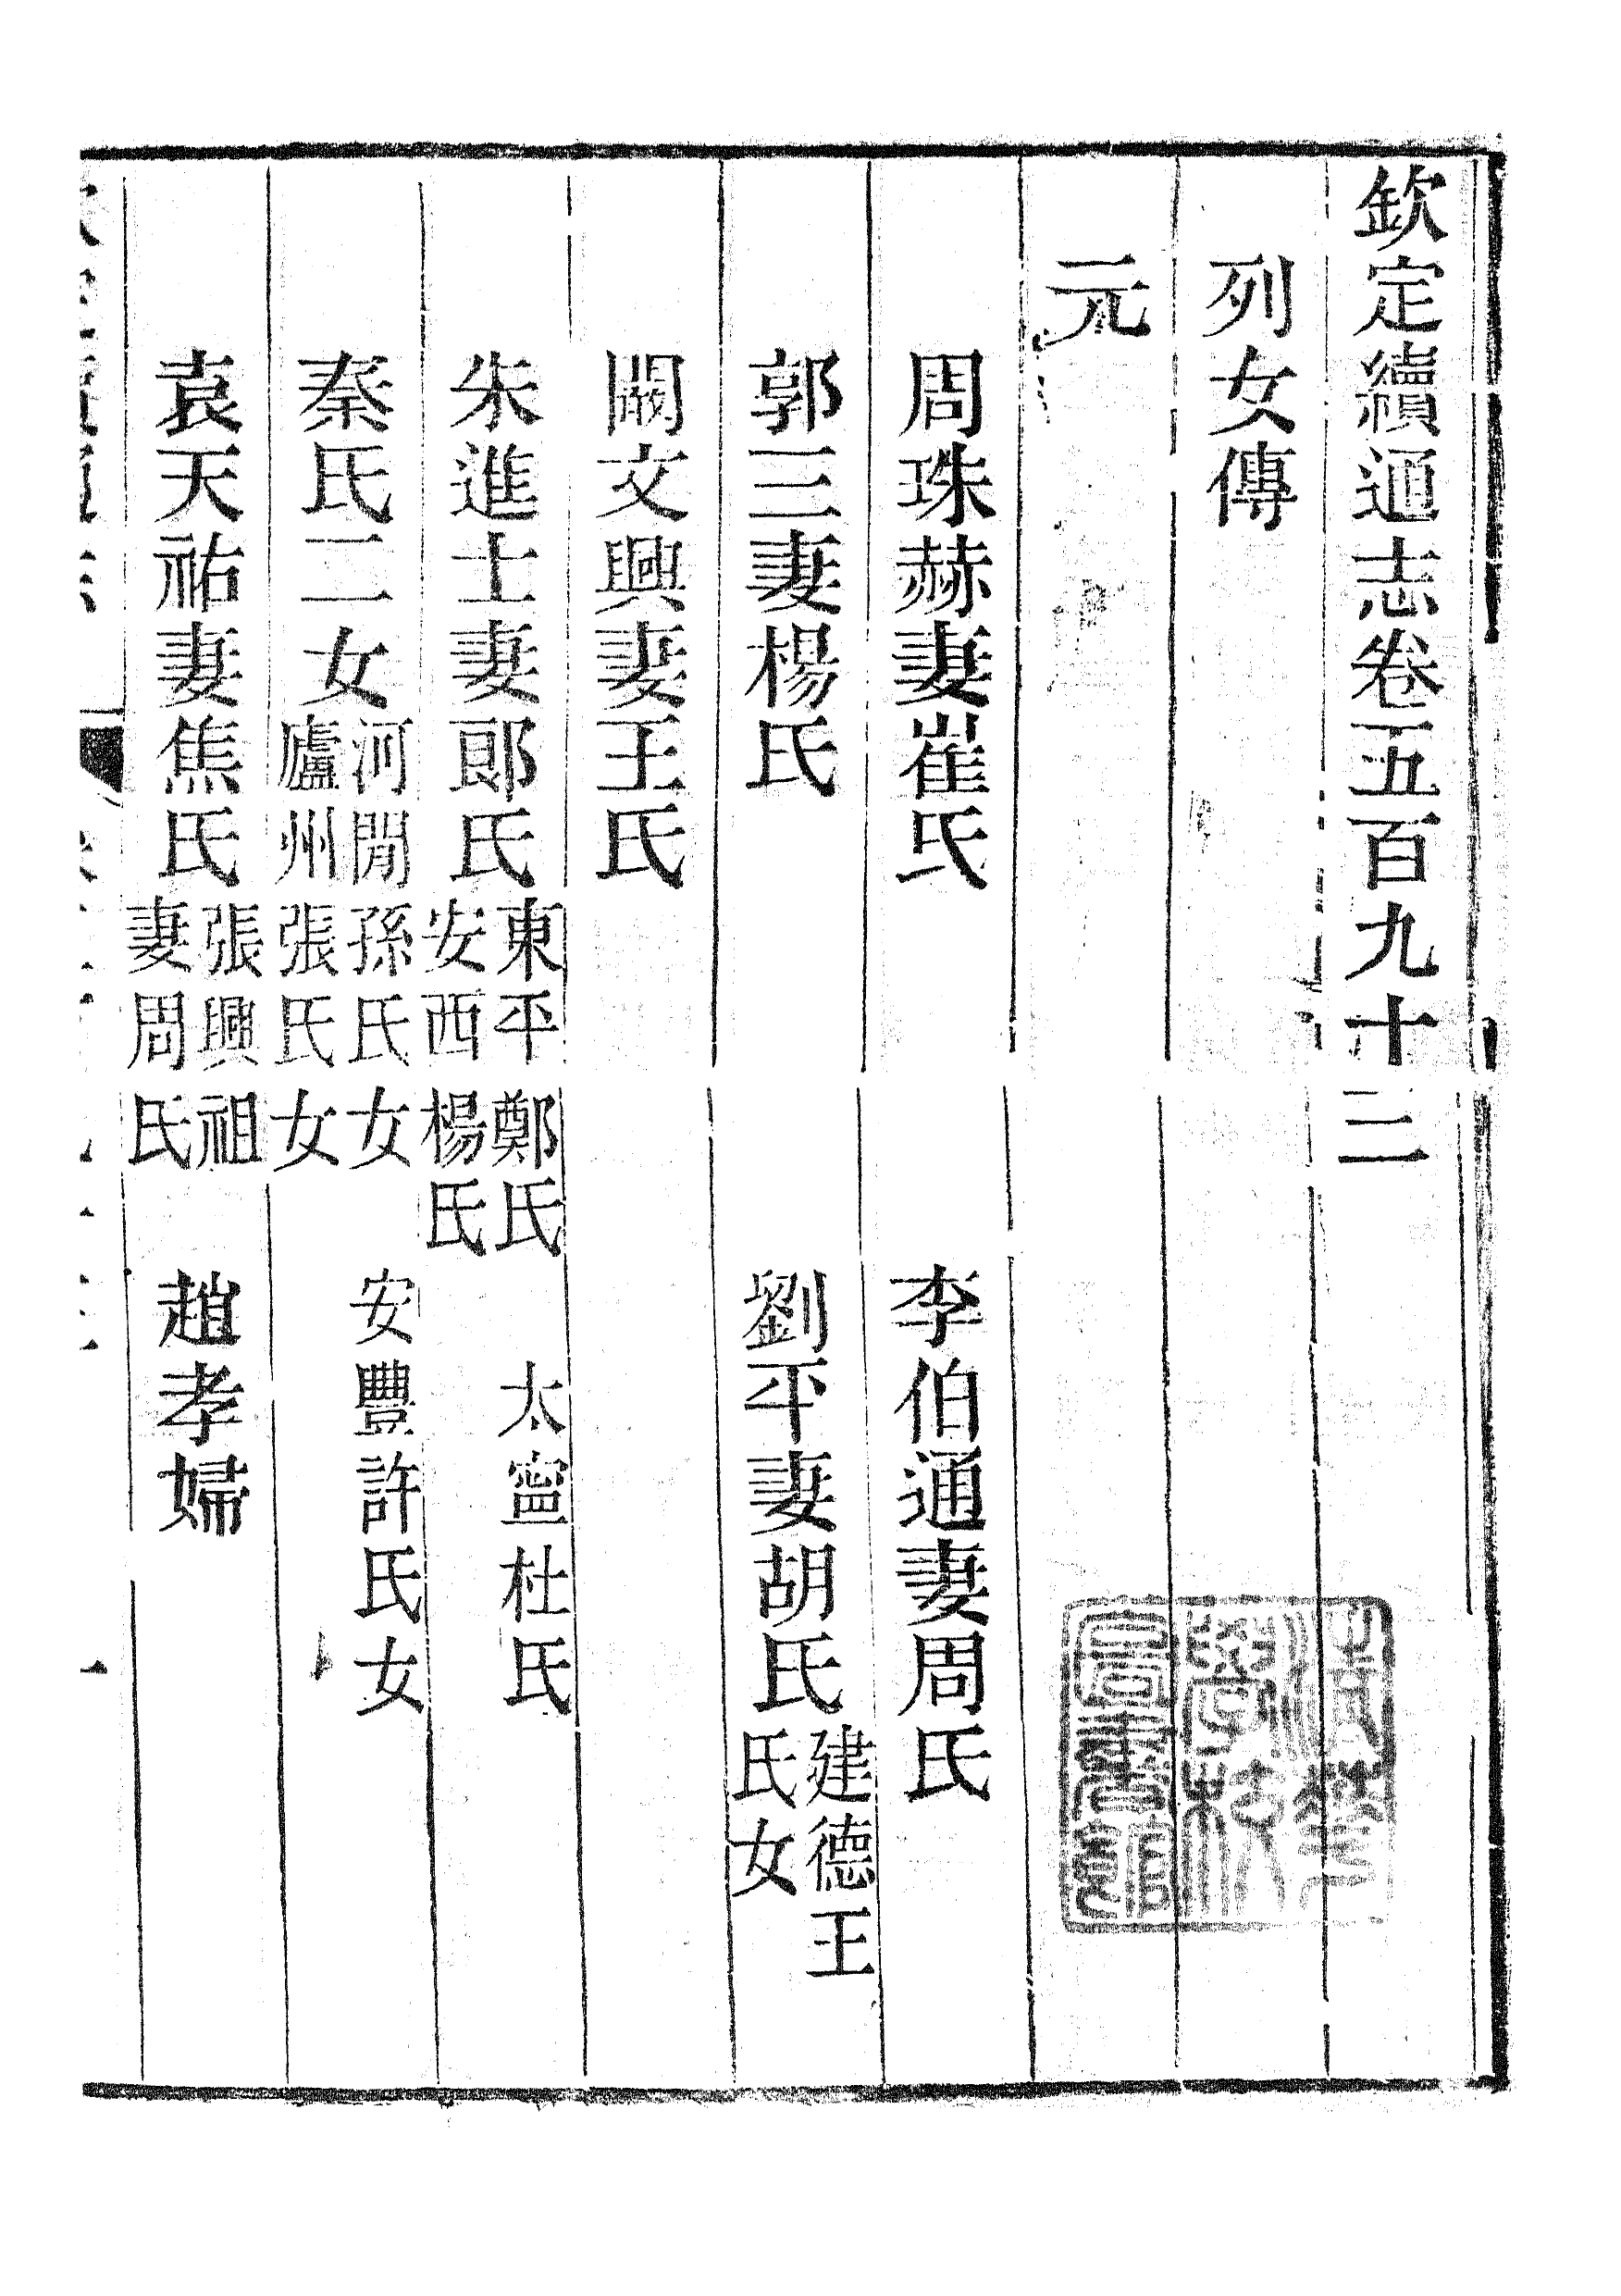 欽定續通志卷五百九十三
列女傳
元
周珠赫妻崔氏　李伯通妻周氏
郭三妻楊氏　劉平妻胡氏建德王氏女
闞文興妻王氏
朱進士妻郎氏東平鄭氏安西楊氏　太甯杜氏
秦氏二女河閒孫氏女廬州張氏女　安豐許氏女
袁天祐妻焦氏張興祖妻周氏　趙孝婦
清華學校圖書館